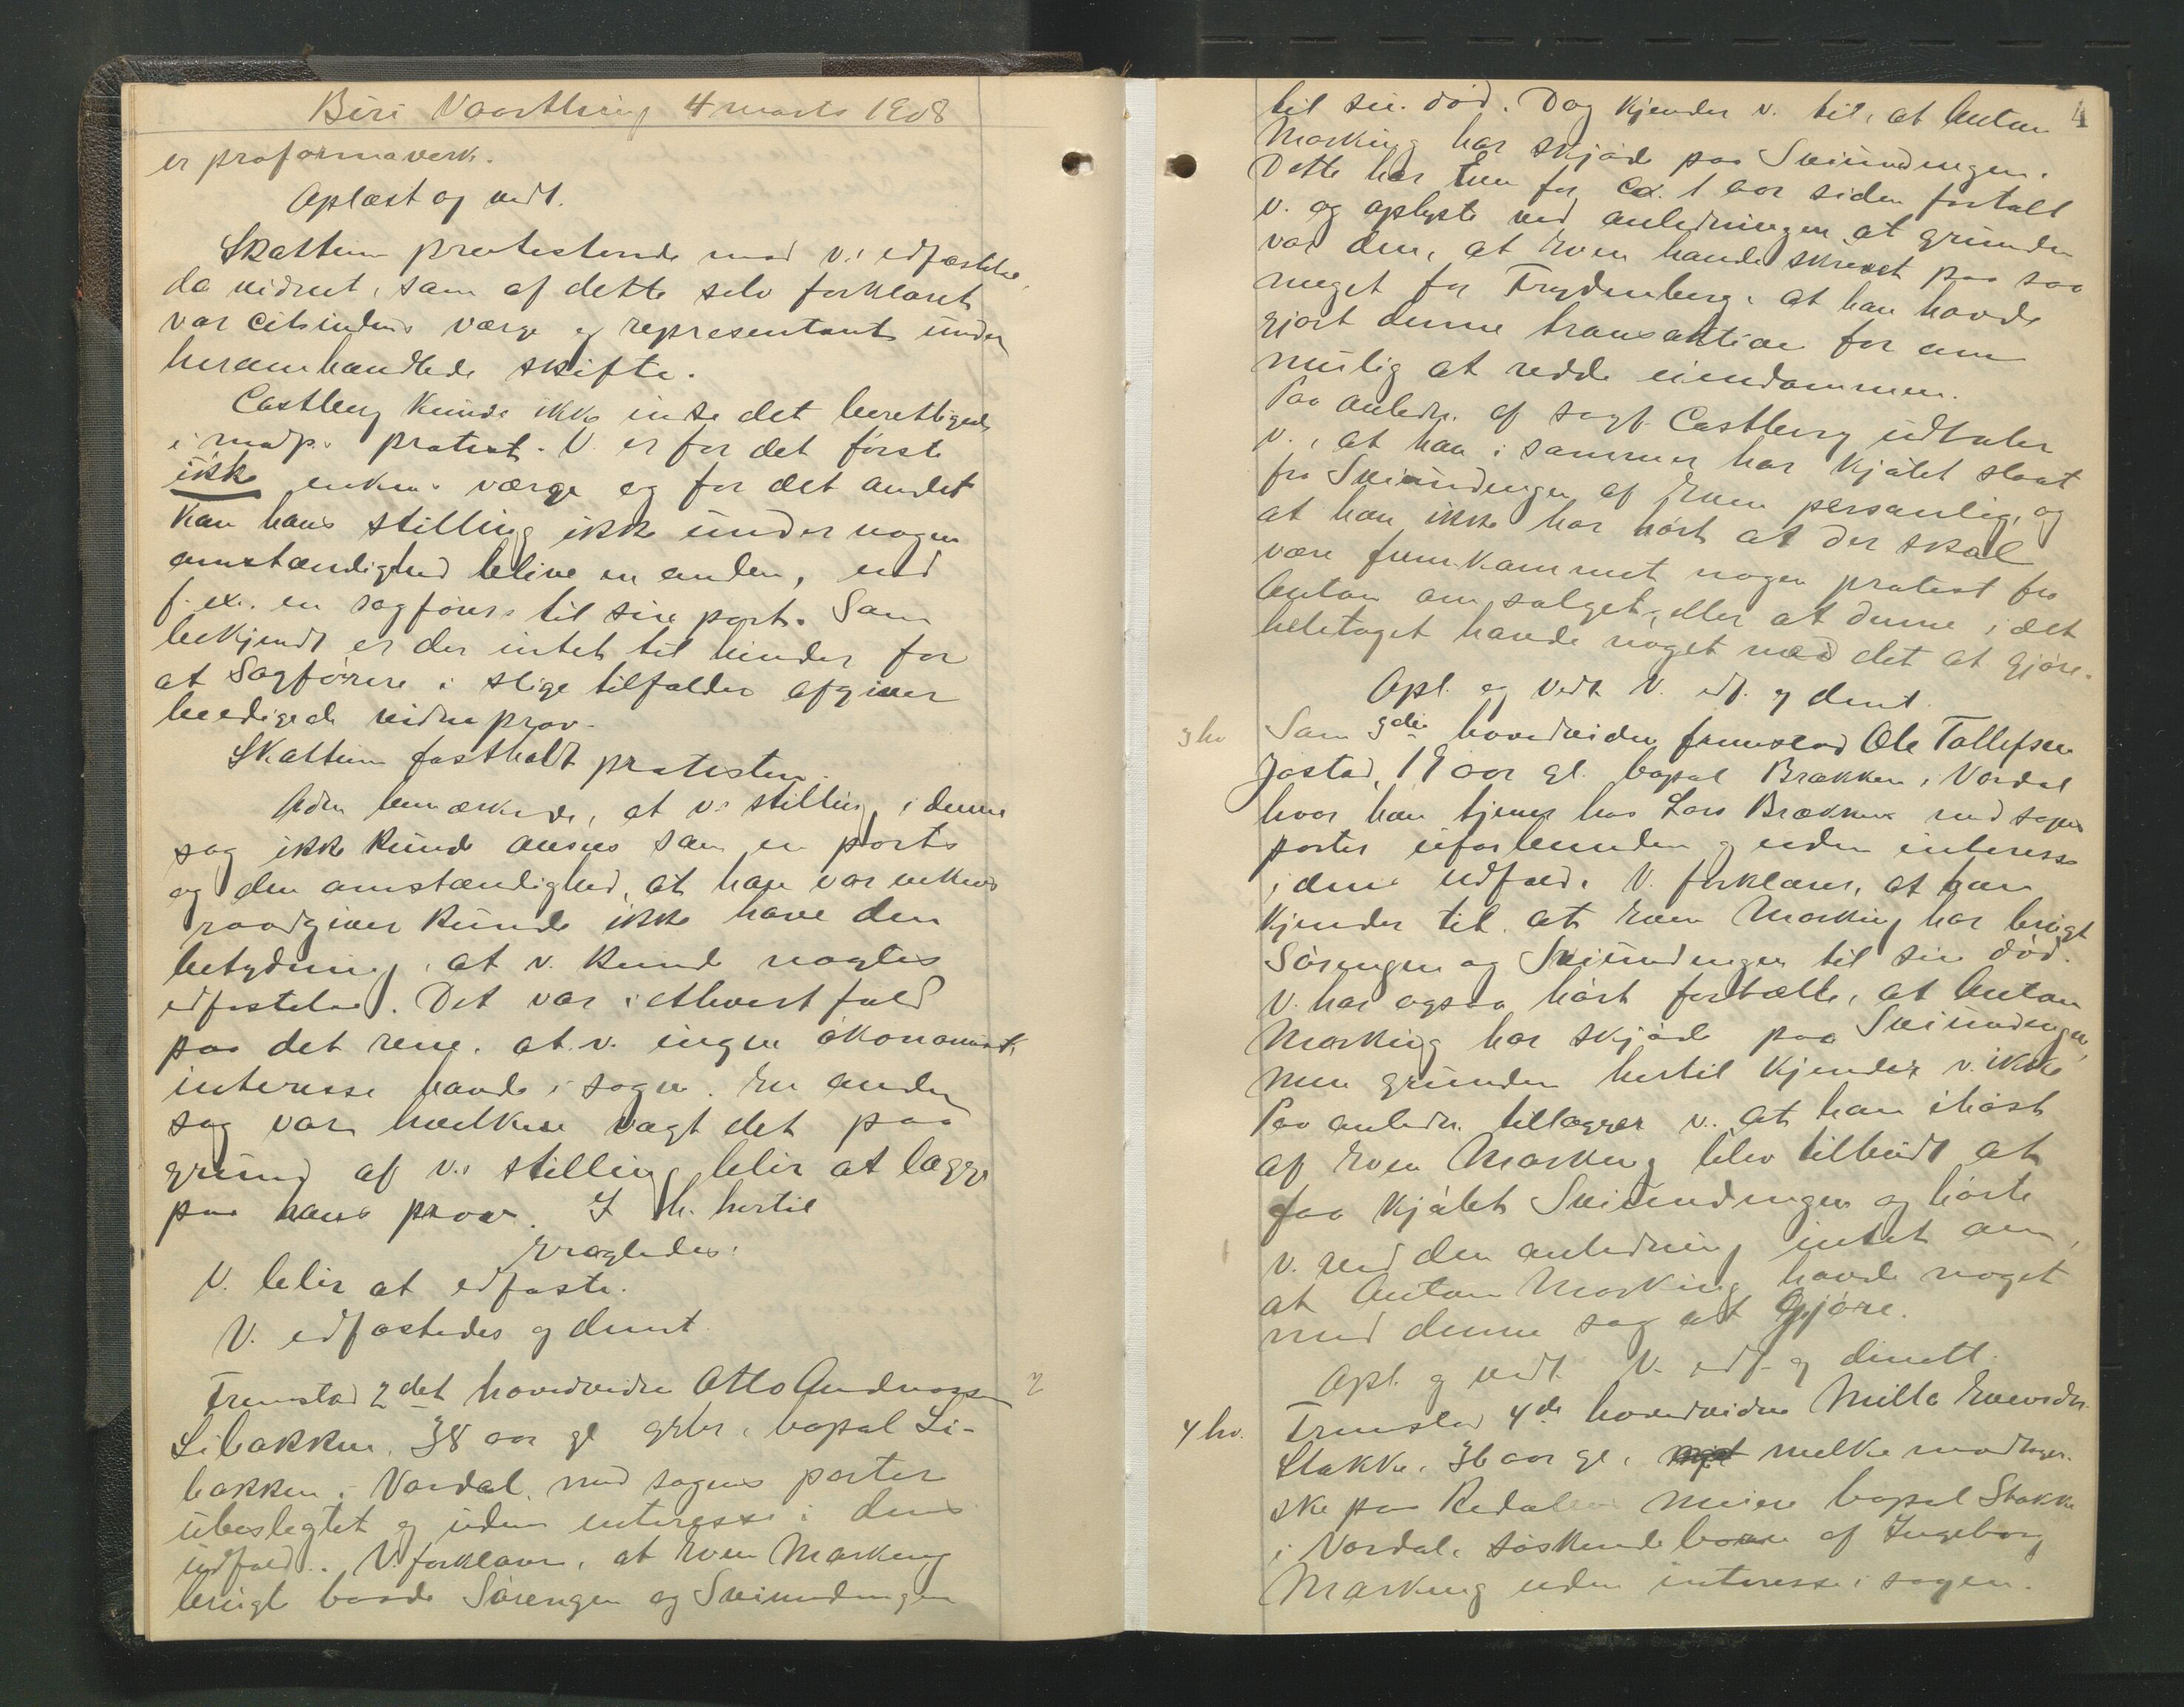 Biri Vaarthing 4 marts 1908
er proformaverk.
Oplæst og vedt.
Skattum protesterede mod v.s edfæstelse,
da vidnet, som af dette selv forklaret
var citantindens værge og repræsentant under
heromhandlede skifte.
Castberg kunde ikke indse det berettigede
i modp.s protest. V. er for det første
ikke enkens værge og for det andet
kan hans stilling ikke under nogen
omstændighed blive en anden, end
f. ex. en sagførers til sin part. Som
bekjendt er der intet til hinder for
at sagførere i slige tilfælder afgiver
beediget vidneprov.
Skattum fastholdt protesten.
Adm bemærkede, at v.s stilling i denne
sag ikke kunde ansees som en parts
og den omstændighed, at han var enkens
raadgiver kunde ikke have den
betydning, at v. kunde nægtes
edfæstelse. Det var i ethvert fald
paa det rene, at v. ingen økonomisk
interesse havde i sagen. En anden
sag var hvilken vægt det paa
grund af v.s stilling blir at lægge
paa hans prov. I h. hertil
eragtedes:
V. blir at edfæste.
V. edfæstedes og dimt.
Fremstod 2det hovedvidne Otto Andreassen
2
Libakken, 38 aar gl gbr., bopæl Li-
bakken i Vardal, med sagens parter
ubeslegtet og uden interesse i dens
udfald. V. forklarer, at Even Markeng
brugte baade Sørengen og Sveinundengen
4
til sin død. Dog kjender v. til, at Anton
Marking har skjøde paa Sveinundengen.
Dette har Even for ca. 1 aar siden fortalt
v. og oplyste ved anledningen, at grunden
var den, at Even havde skrevet paa saa
meget for Frydenberg, at han havde
gjort denne transaktion for om
mulig at redde eiendommen.
Paa anledn. af sagf. Castberg udtaler
v., at han i sommer har kjøbt slaat
fra Sveinundengen af Even personlig, og
at han ikke har hørt at der skal
være fremkommet nogen protest fra
Anton om salget, eller at denne i det
heletaget havde noget med det at gjøre.
Opl. og vedt. V. edf. og dimt.
3 hv
Som 3die hovedvidne fremstod Ole Tollefsen
Jøstad, 19 aar gl. bopæl Brækken i Vardal
hvor han tjener hos Lars Brækken med sagens
parter uforbunden og uden interesse
i dens udfald. V. forklarer, at han
kjender til, at Even Marking har brugt
Sørengen og Sveinundengen til sin død.
V. har ogsaa hørt fortælle, at Anton
Marking har skjøde paa Sveinundengen,
men grunden hertil kjender v. ikke.
Paa anledn. tillægger v. at han ihøst
af Even Marking blev tilbudt at
faa kjøbt Sveinundengen og hørte
v. ved den anledning intet om,
at Anton Marking havde noget
med denne sag at gjøre.
Opl. og vedt. V. edf. og dimitt.
4 hv.
Fremstod 4de hovedvidne Milla Evensdr.
Stakke, 36 aar gl., melkemodtager-
ske paa Redalens meieri bopæl Stakke
i Vardal, søskendebarn af Ingeborg
Marking uden interesse i sagen.